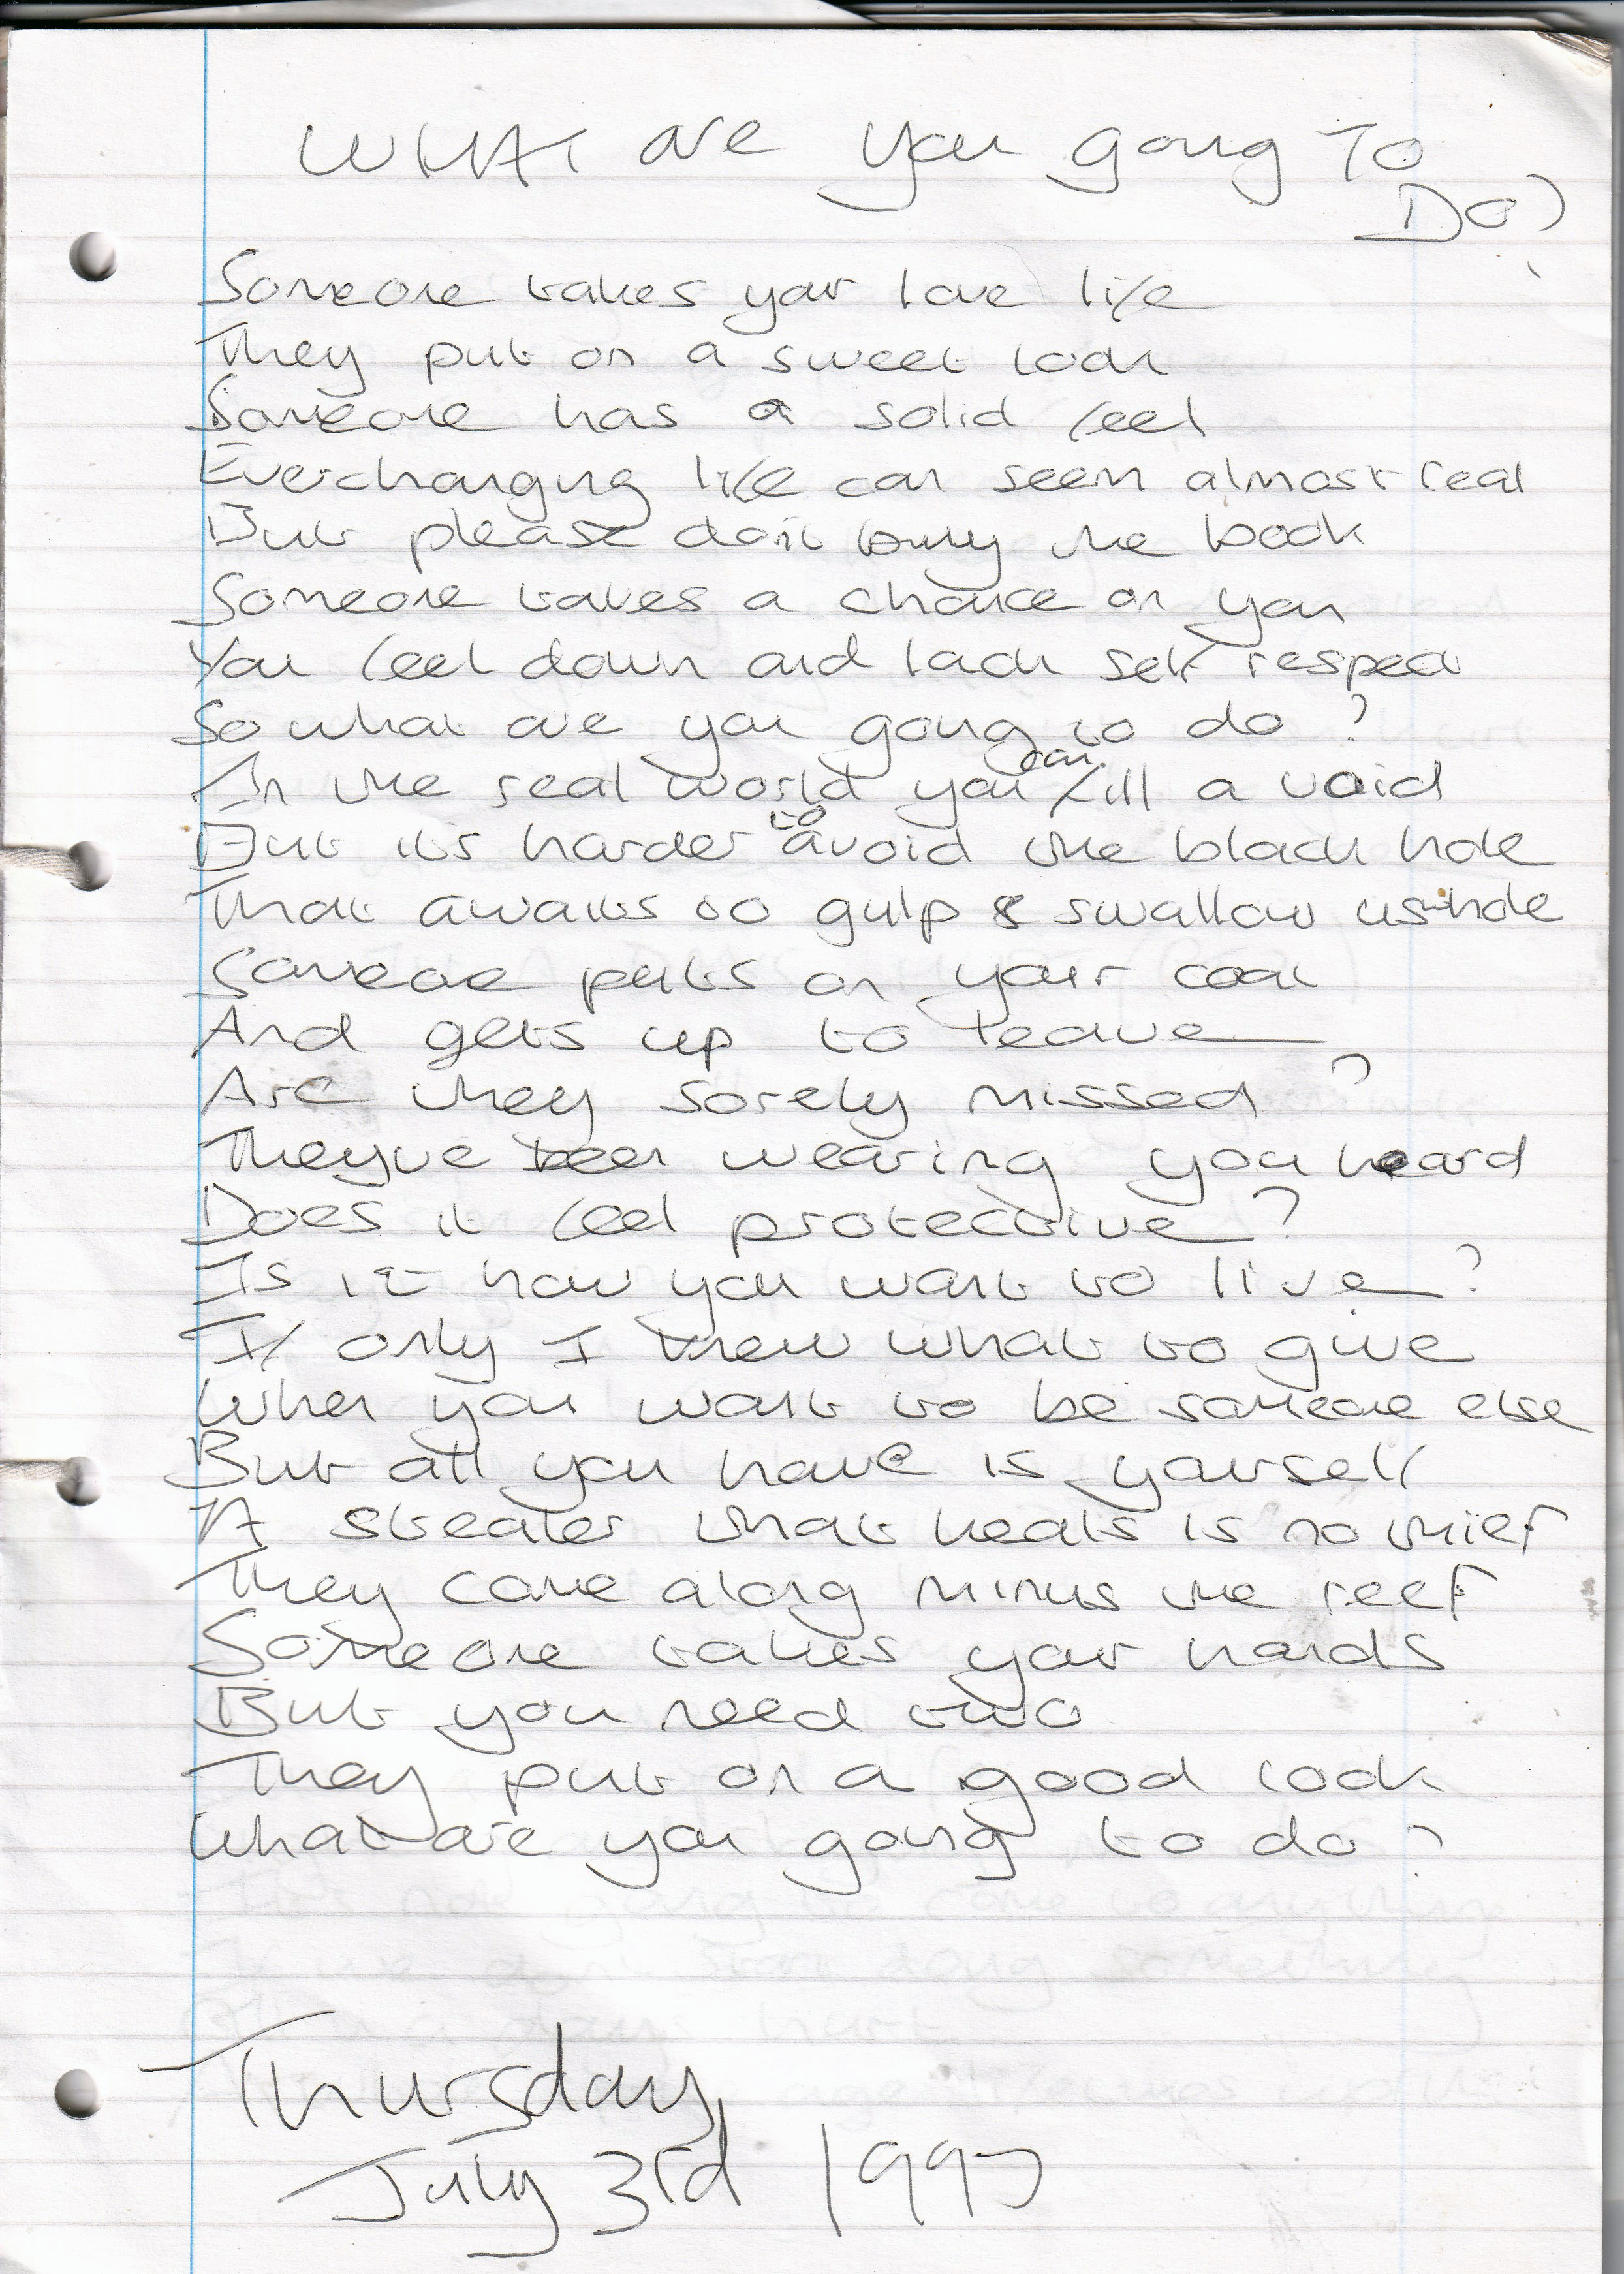 WHAT are you going To
DO?
Someone takes your love life
They put on a sweet look
Someone has a solid feel
Everchanging life can seem almost real
But please don't buy the book
Someone takes a chance on you
You feel down and lack self respect
So what are you going to do?
In the real world you can fill a void
But its harder to avoid the black hole
That awaits to gulp & swallow us whole
Someone puts on your coat
And gets up to leave
Are they sorely missed?
Theyve been wearing you heard
Does it feel protective?
Is it how you want to live?
If only I knew what to give
When you want to be someone else
But all you have is yourself
A stealer that heals is no thief
They come along minus the reef
Someone takes your hands
But you need two
They put on a good look
What are you going to do?
Thursday
July 3rd 1997